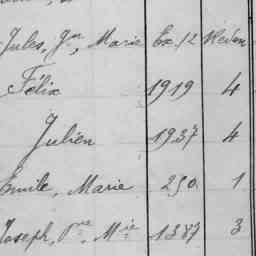 Jules, Jn, Marie Ex. /2 Reden
Félix 1919 4
Julien 1937 4
Emile, Marie 290. 1
Joseph, Pre, Mie 1387 3